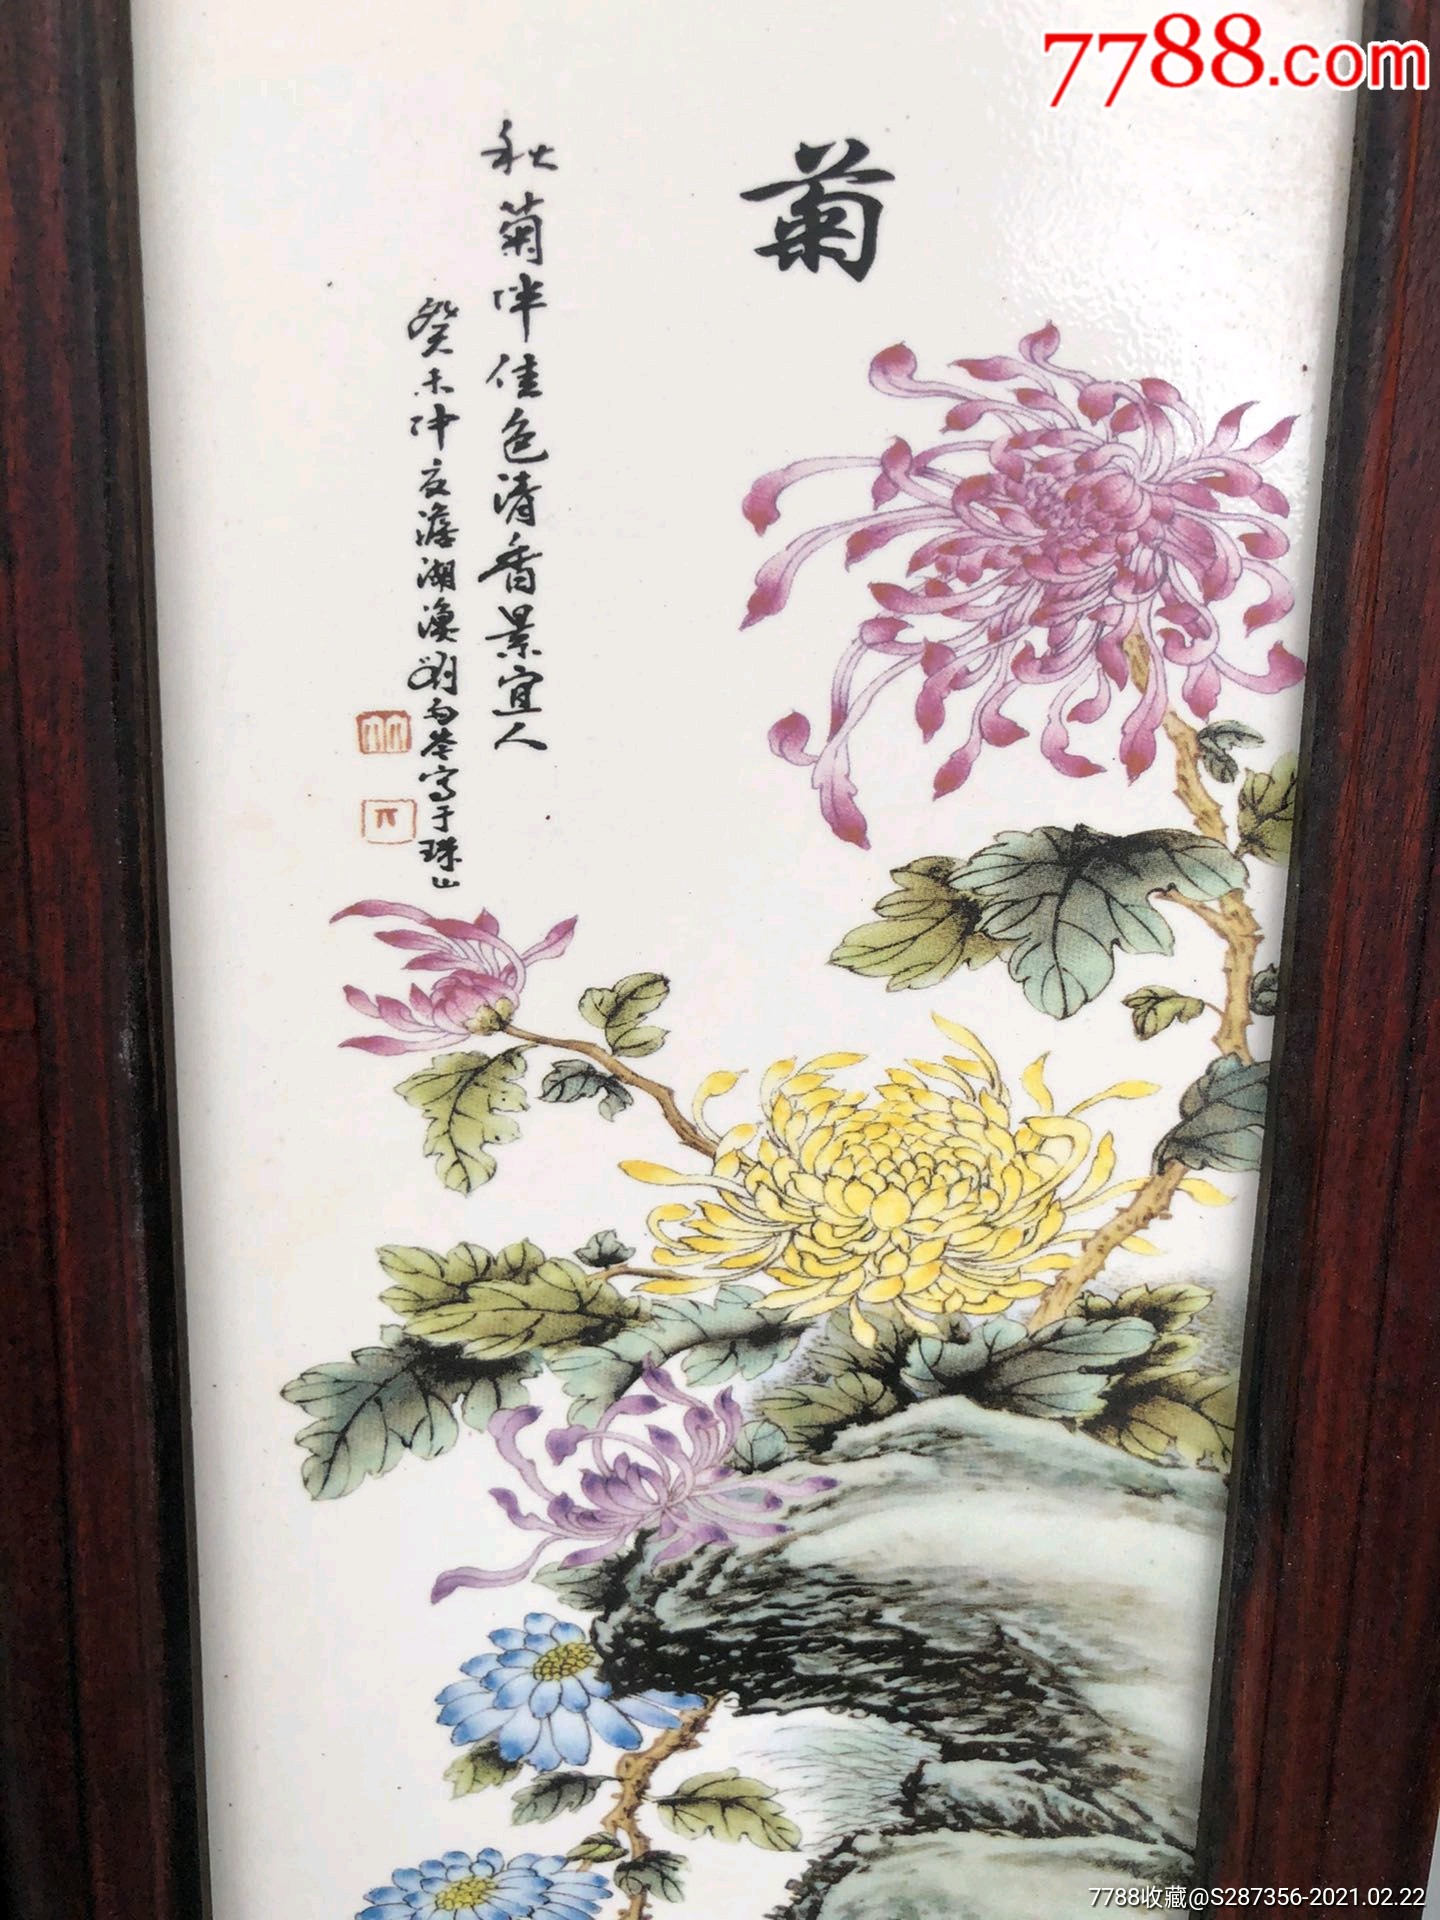 7788.com
菊
秋菊伴佳色清香景宜人
癸未仲夏澹湖渔翁刘雨岑写于珠山
7788收藏@S287356-2021.02.22